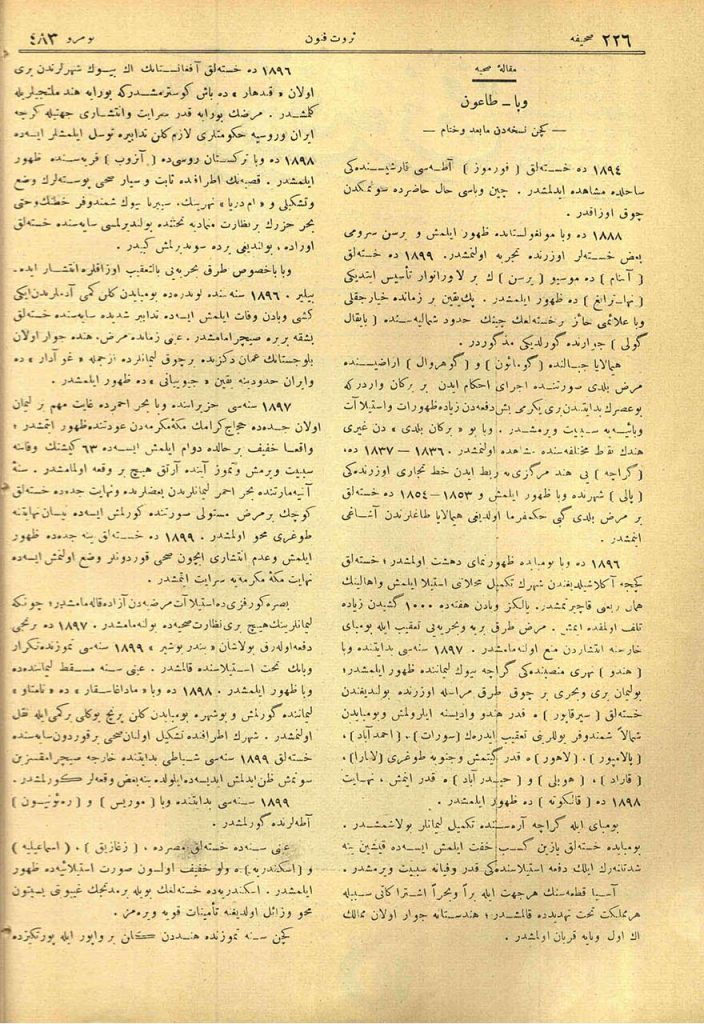 ٢٢٦ صحيفه
ثروت فنون
نومرو ٤٨٣
مقالهٔ صحيه
وبا ـ طاعون
— كچن نسخه‌دن مابعد وختام —
١٨٩٤ ده خسته‌لق ( فورموز ) آطه‌سی قارشيسنده‌كی
ساحلده مشاهده ايدلمشدر . چين وباسی حال حاضرده سونمكدن
چوق اوزاقدر .
١٨٨٨ ده وبا مونغولستانده ظهور ايلمش و يرسن سرومی
بعض خسته‌لر اوزرنده تجربه اولنمشدر . ١٨٩٩ ده خسته‌لق
( آننام ) ده موسيو ( يرسن ) ك بر لاوراتوار تأسيس ايتديكی
( نهاـترانغ ) ده ظهور ايلمشدر . پك‌يقين بر زمانده خيارجقلی
وبا علائمی حائز برخسته‌لغك چينك حدود شماليه‌سنده ( بايقال
گولی ) جوارنده گورلديكی مذكوردر .
هيمالايا جبالنده ( گومائون ) و ( گوهروال ) اراضيسنده
مرض بلدی صورتنده اجرای احكام ايدن بر بركان واردركه
بوعصرك بدايتندن‌بری يكرمی بش دفعه‌دن زياده ظهورات واستيلاآت
وبائيه‌يه سببيت ويرمشدر . وبا بو « بركان بلدی » دن غيری
هندك نقط مختلفه‌سنده مشاهده اولنمشدر . ١٨٣٦ — ١٨٣٧ ده،
( گراچه ) يی هند مركزی‌يه ربط ايدن خط تجاری اوزرنده‌كی
( پالی ) شهرنده وبا ظهور ايلمش و ١٨٥٣ـ ١٨٥٤ ده خسته‌لق
بر مرض بلدی گبی حكمفرما اولديغی هيمالايا طاغلرندن آشاغی
ايتمشدر .
١٨٩٦ ده وبا بومبايده ظهورنمای دهشت اولمشدر ؛ خسته‌لق
كيجه آكلاشيلديغندن شهرك تكميل محلاتنی استيلا ايلمش واهالينك
همان ربعی قاچيرتمشدر. يالكز وبادن هفته‌ده ١٠٠٠ كشيدن زياده
تلف اولمقده ايمش . مرض طرق بريه وبحريه‌یی تعقيب ايله بومبای
خارجنه انتشاردن منع اولنه‌مامشدر . ١٨٩٧ سنه‌سی بدايتنده وبا
( هندو ) نهری منصبنده‌كی گراچه بيوك ليماننده ظهور ايلمشدر؛
بوليمان بری وبحری بر چوق طرق مراسله اوزرنده بولنديغندن
خسته‌لق ( سيرقاپور ) ه قدر هندو واديسنه ايلرولمش وبومبايدن
شمالاً شمندوفر يوللرينی تعقيب ايدرك ( سورات ) ، ( احمدآباد ) ،
( پالامپور ) ، ( لاهور ) ه قدر گيتمش وجنوبه طوغری ( لانارا ) ،
( قاراد ) ، ( هوبلی ) و ( حيدر آباد ) ه قدر اينمش ، نهايت
١٨٩٨ ده ( قالكوته ) ده ظهور ايلمشدر .
بومبای ايله گراچه آره‌سنده تكميل ليمانلر بولاشمشدر .
بومبايده خسته‌لق يازين كسب خفت ايلمش ايسه‌ده قيشين ينه
شدتلنه‌رك ايلك دفعه استيلاسنده‌كی قدر وفياته سببيت ويرمشدر .
آسيا قطعه‌سنك هرجهت ايله براً وبحراً اشتراكاتی سببيله
هرمملكت تحت تهديدده قالمشدر ؛ هندستانه جوار اولان ممالك
اك اول وبايه قربان اولمشدر .
١٨٩٦ ده خسته‌لق آفغانستانك اك بيوك شهرلرندن بری
اولان « قندهار » ده باش كوسترمشدركه بورايه هند ملتجيلريله
كلمشدر . مرضك بورايه قدر سرايت وانتشاری جهتيله گرچه
ايران وروسيه حكومتلری لازم كلن تدابيره توسل ايلمشلر ايسه‌ده
١٨٩٨ ده وبا تركستان روسی‌ده ( آنزوب ) قريه‌سنده ظهور
ايلمشدر . قصبه‌نك اطرافنده ثابت و سيار صحی پوسته‌لرك وضع
وتشكيلی و « ام دريا » نهرينك، سيبريا بيوك شمندوفر خطنك‌وحتی
بحر حزرك برنظارت متماديه تحتنده بولندیرلمسی سايه‌سنده خسته‌لق
اوراده ، بولنديغی يرده سوندیرلمش كبيدر .
وبا باخصوص طرق بحريه‌یی بالتعقيب اوزاقلره انتشار ايده‌
بيلير . ١٨٩٦ سنه‌سنده لوندره‌ده بومبايدن كلن كمی آدملرندن‌ايكی
كشی وبادن وفات ايلمش ايسه‌ده تدابير شديده سايه‌سنده خسته‌لق
بشقه بريره صيچرامامشدر. عينی زمانده مرض، هنده جوار اولان
بلوجستانك عمان دكزنده برچوق ليمانلرنده ازجمله « غوآدار » ده
وايران حدودينه يقين « جيوپانی » ده ظهور ايلمشدر .
١٨٩٧ سنه‌سی حزيراننده وبا بحر احمرده غايت مهم بر ليمان
اولان جده‌ده حجاج كرامك مكۀ‌مكرمه‌دن عودتنده ظهور ايتمشدر ؛
واقعا خفيف بر حالده دوام ايلمش ايسه‌ده ٦٣ كيشينك وفاتنه
سببيت ويرمش وتموز آينده آرتق هيچ بر وقعه اولمامشدر . سنۀ
آتيه مارتنده بحر احمر ليمانلرندن بعضلرنده ونهايت جده‌ده خسته‌لق
كوچك برمرض مستولی صورتنده كورلمش ايسه‌ده نيسان نهايتنه
طوغری محو اولمشدر . ١٨٩٩ ده خسته‌لق ينه جده‌ده ظهور
ايلمش وعدم انتشاری ايچون صحی قوردونلر وضع اولنمش ايسه‌ده
نهايت مكۀ مكرمه‌يه سرايت ايتمشدر .
بصره كورفزی‌ده استيلاآت مرضيه‌دن آزاده قاله‌مامشدر؛ چونكه
ليمانلرينك هيچ بری نظارت صحيه‌ده بولنه‌مامشدر . ١٨٩٧ ده برنجی
دفعه‌اوله‌رق بولاشان « بندر بوشير » ١٨٩٩ سنه‌سی تموزنده تكرار
وبانك تحت استيلاسنده قالمشدر . عينی سنه مسقط ليماننده‌ده
وبا ظهور ايلمشدر . ١٨٩٨ ده وبا « ماداغاسقار » ده « تاماتاو »
ليماننده گورلمش و بوشهره بومبايدن كلن پرنج يوكلی بركمی ايله نقل
اولنمشدر . شهرك اطرافنده تشكيل اولنان صحی برقوردون سايه‌سنده
خسته‌لق ١٨٩٩ سنه‌سی شباطی بدايتنده خارجه صيچرامقسزين
سونمش ظن ايدلمش ايديسه‌ده ايلولده ينه بعض وقعه‌لر كورلمشدر .
١٨٩٩ سنه‌سی بدايتنده وبا ( موريس ) و ( رەئونيون )
آطه‌لرنده گورلمشدر .
عينی سنه‌ده خسته‌لق مصرده ، ( زغازيق ) ، ( اسماعيليه )
و ( اسكندريه ) ده ولو خفيف اولسون صورت استيلائيه‌ده ظهور
ايلمشدر . اسكندريه‌ده خسته‌لغك بويله برمدتجك غيبوبتی بسبتون
محو وزائل اولديغنه تأمينات قويه ويره‌مز .
كچن سنه تموزنده هنددن كلن بر واپور ايله پورتكيزده